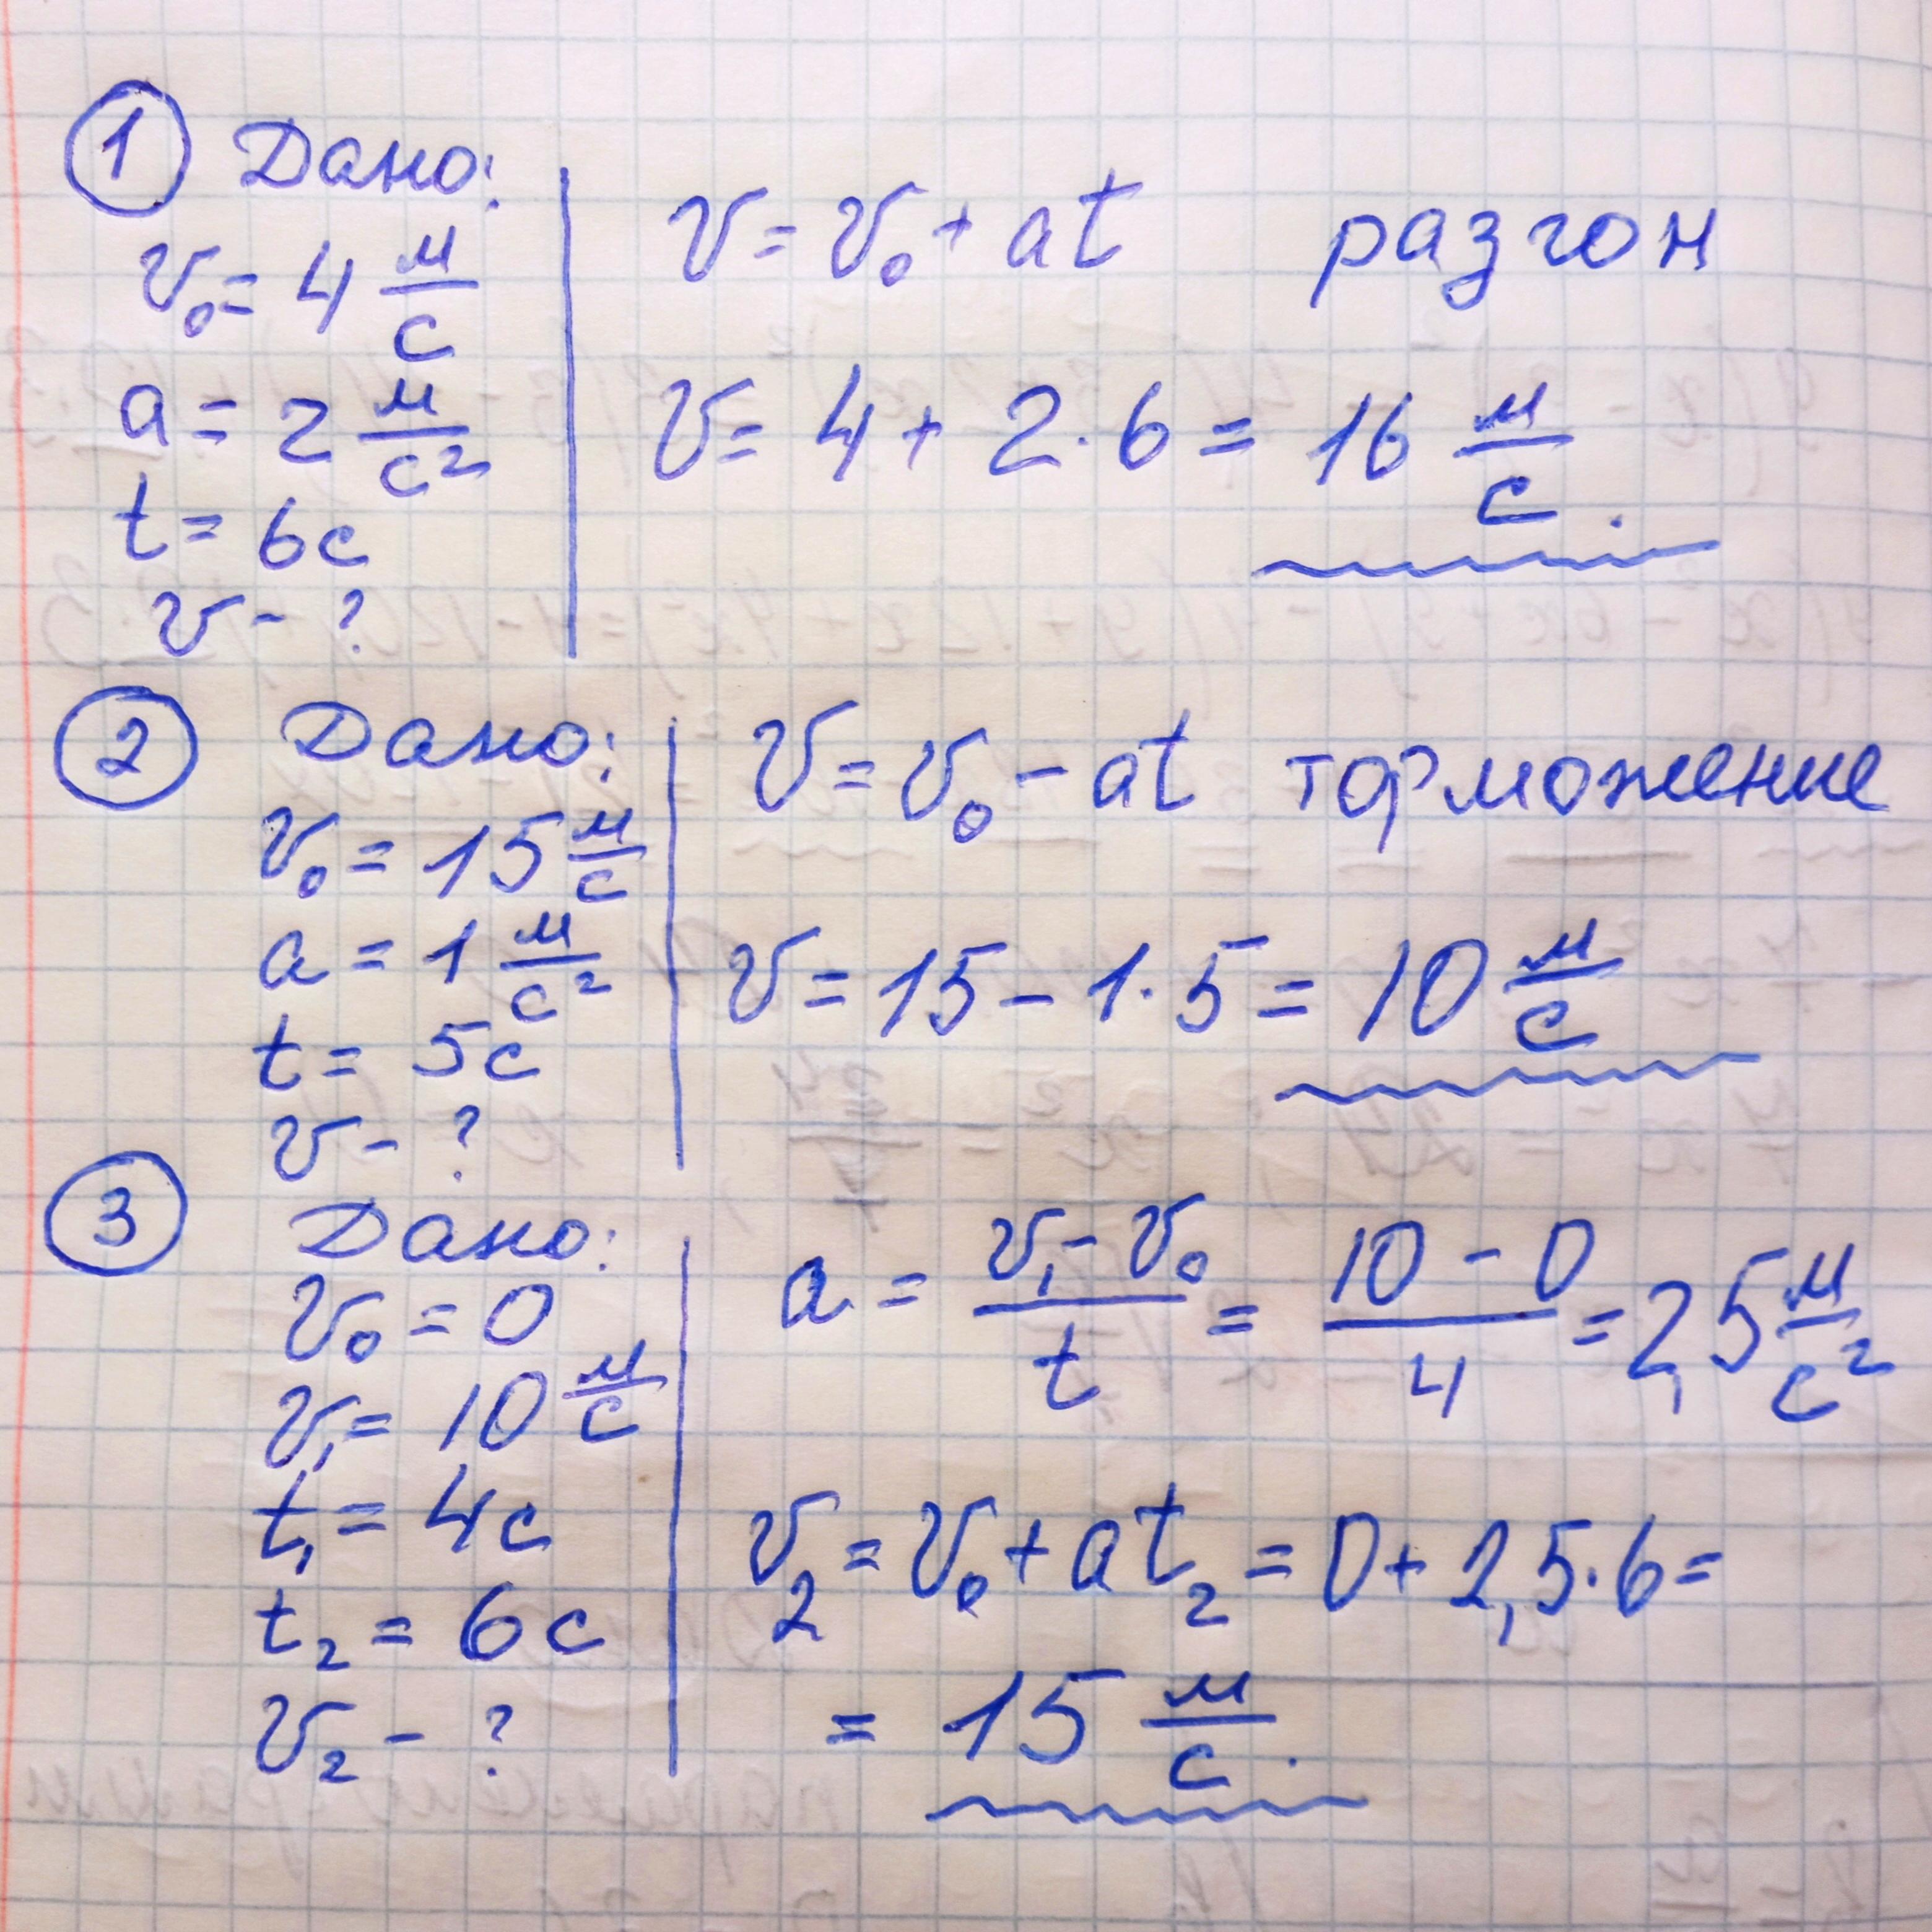 ① Дано:
v₀ = 4 м/с
a = 2 м/с²
t = 6с
v - ?
v = v₀ + at разгон
v = 4 + 2·6 = 16 м/с.
② Дано:
v₀ = 15 м/с
a = 1 м/с²
t = 5с
v - ?
v = v₀ - at торможение
v = 15 - 1·5 = 10 м/с
③ Дано:
v₀ = 0
v₁ = 10 м/с
t₁ = 4с
t₂ = 6с
v₂ - ?
a = (v₁ - v₀)/t = (10 - 0)/4 = 2,5 м/с²
v₂ = v₀ + at₂ = 0 + 2,5·6 =
= 15 м/с.